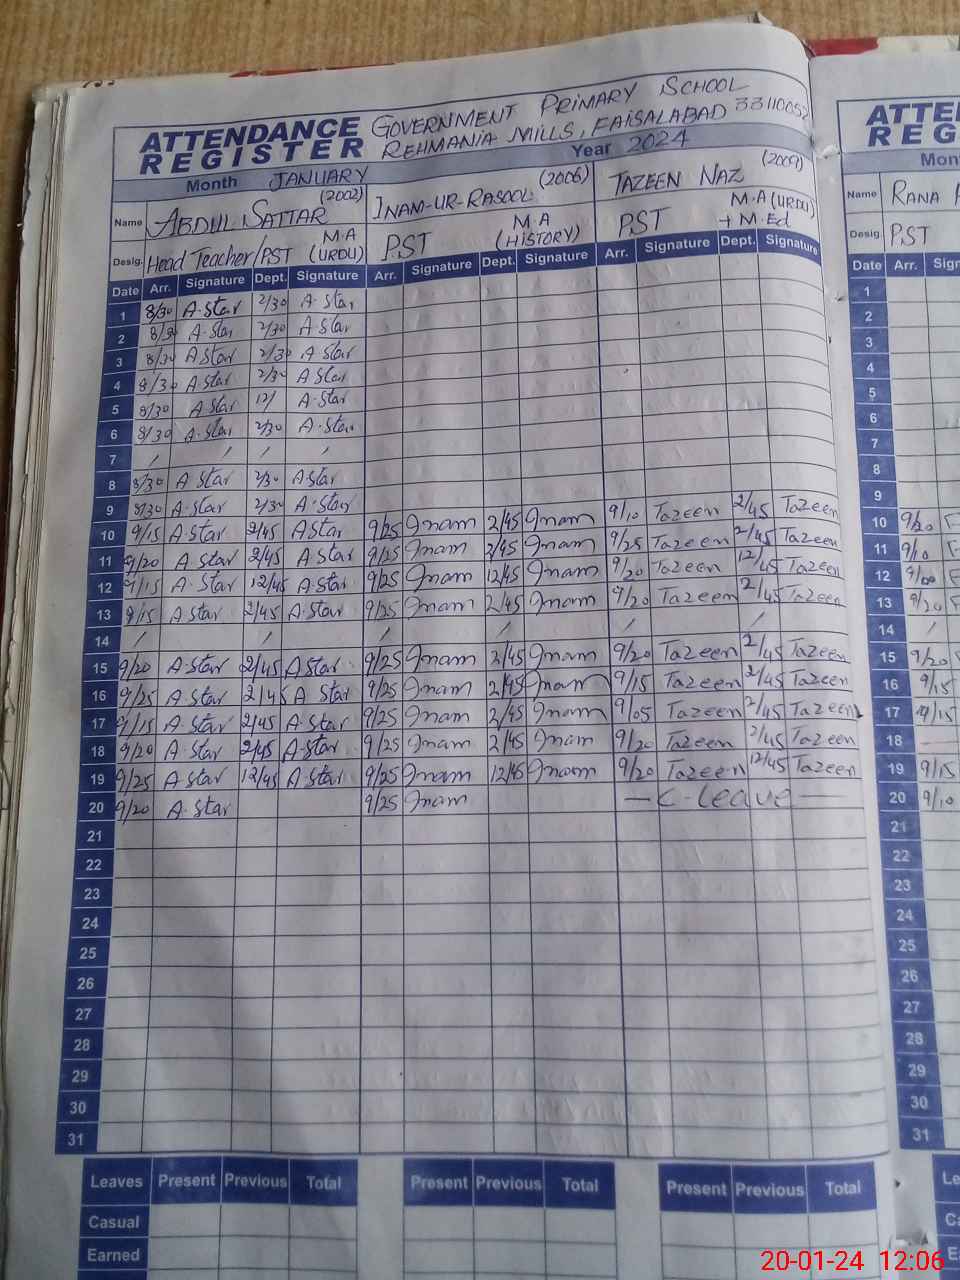 ATTENDANCE REGISTER GOVERNMENT PRIMARY SCHOOL
REHMANIA MILLS, FAISALABAD 33110052
Month JANUARY Year 2024
(2002) (2006) (2009)
Name ABDUL SATTAR INAM-UR-RASOOL TAZEEN NAZ
Desig. Head Teacher/PST M.A (URDU) PST M.A (HISTORY) PST M.A (URDU) + M.Ed
Date Arr. Signature Dept. Signature Arr. Signature Dept. Signature Arr. Signature Dept. Signature
1 8/30 A.Star 2/30 A.Star
2 8/30 A.Star 2/30 A.Star
3 8/30 A Star 2/30 A Star
4 8/30 A Star 2/30 A Star
5 8/30 A Star 12/ A.Star
6 8/30 A.Star 2/30 A.Star
7 / / / /
8 8/30 A Star 2/30 A.Star
9 8/30 A.Star 2/30 A.Star
10 9/15 A Star 2/45 A Star 9/25 Inam 2/45 Inam 9/10 Tazeen 2/45 Tazeen
11 9/20 A Star 2/45 A Star 9/25 Inam 2/45 Inam 9/25 Tazeen 2/45 Tazeen
12 9/15 A.Star 12/45 A.Star 9/25 Inam 12/45 Inam 9/20 Tazeen 12/45 Tazeen
13 9/15 A Star 2/45 A.Star 9/25 Inam 2/45 Inam 9/20 Tazeen 2/45 Tazeen
14 / / / / / /
15 9/20 A.Star 2/45 A Star. 9/25 Inam 2/45 Inam 9/20 Tazeen 2/45 Tazeen
16 9/25 A Star 2/45 A Star 9/25 Inam 2/45 Inam 9/15 Tazeen 2/45 Tazeen
17 9/15 A Star 2/45 A Star 9/25 Inam 2/45 Inam 9/05 Tazeen 2/45 Tazeen
18 9/20 A Star 2/45 A.Star 9/25 Inam 2/45 Inam 9/20 Tazeen 2/45 Tazeen
19 9/25 A Star 12/45 A Star 9/25 Inam 12/45 Inam 9/20 Tazeen 12/45 Tazeen
20 9/20 A.Star 9/25 Inam — C-leave —
21
22
23
24
25
26
27
28
29
30
31
Leaves Present Previous Total Present Previous Total Present Previous Total
Casual
Earned
Name RANA
Desig. PST
Date Arr.
1
2
3
4
5
6
7
8
9
10 9/20
11 9/10
12
13 9/20
14 /
15 9/20
16 9/15
17 9/15
18 —
19 9/15
20 9/10
21
22
23
24
25
26
27
28
29
30
31
20-01-24 12:06